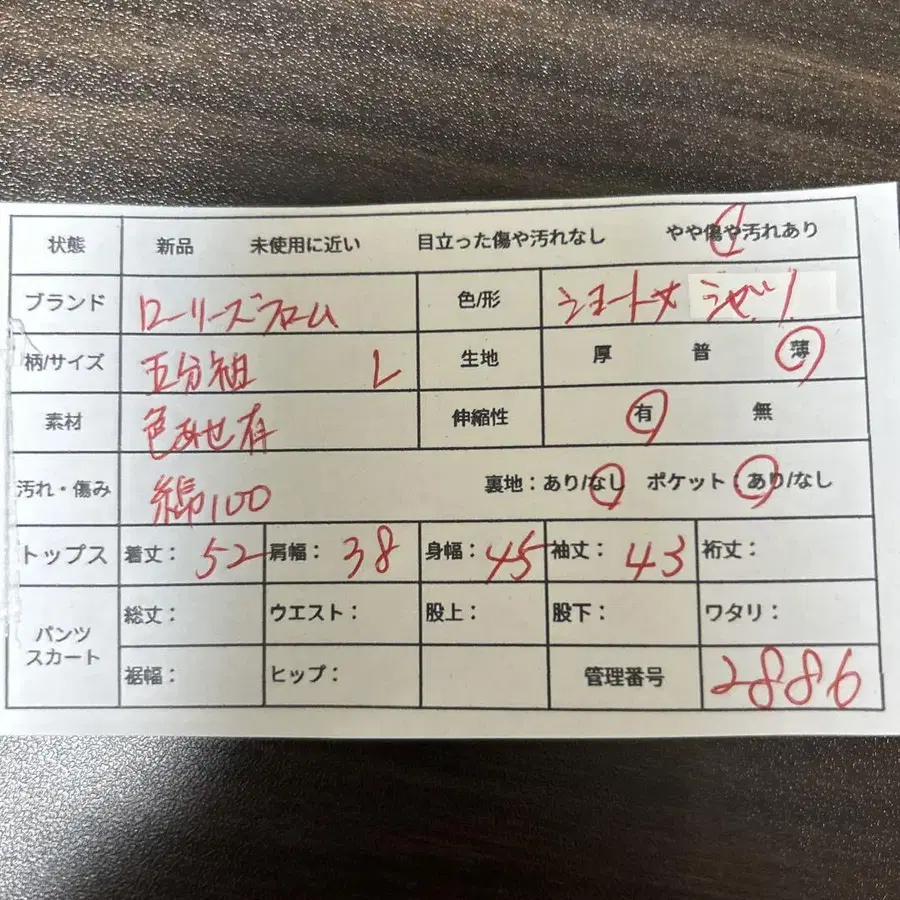 状態 新品 未使用に近い 目立った傷や汚れなし やや傷や汚れあり
ブランド ローリーズファーム 色/形 ショート丈 シャツ
柄/サイズ 五分袖 L 生地 厚 普 薄
素材 色あせ有 伸縮性 有 無
汚れ・傷み 綿100 裏地：あり/なし ポケット：あり/なし
トップス 着丈： 52 肩幅： 38 身幅： 45 袖丈： 43 裄丈：
パンツ スカート
総丈： ウエスト： 股上： 股下： ワタリ：
裾幅： ヒップ： 管理番号 2886